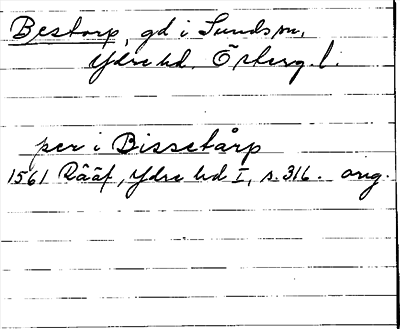 Bestorp, gd i Sunds sn,
Ydre hd. Österg. l.
per i Bissetårp
1561 Rääf, Ydre hd I, s. 316. orig.